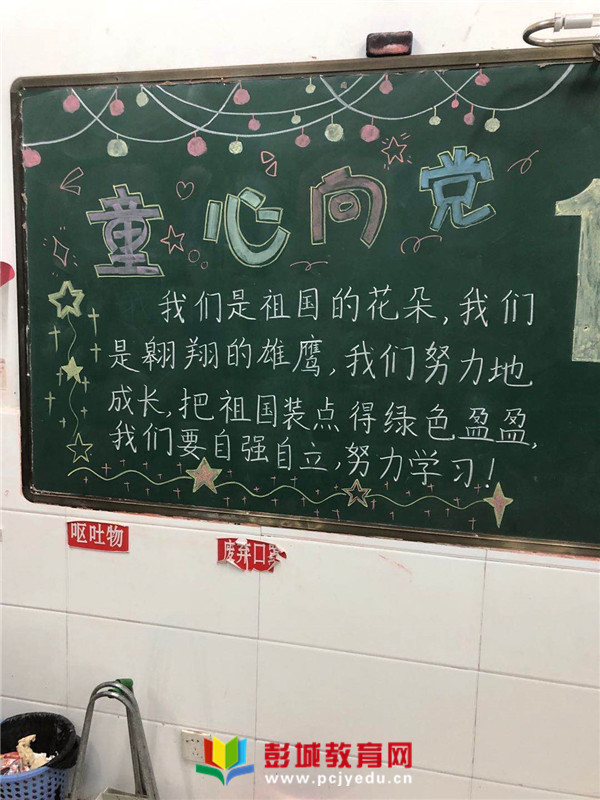 童心向党
我们是祖国的花朵,我们
是翱翔的雄鹰,我们努力地
成长,把祖国装点得绿色盈盈,
我们要自强自立,努力学习!
1
呕吐物
废弃口罩
彭城教育网
www.pcjyedu.cn